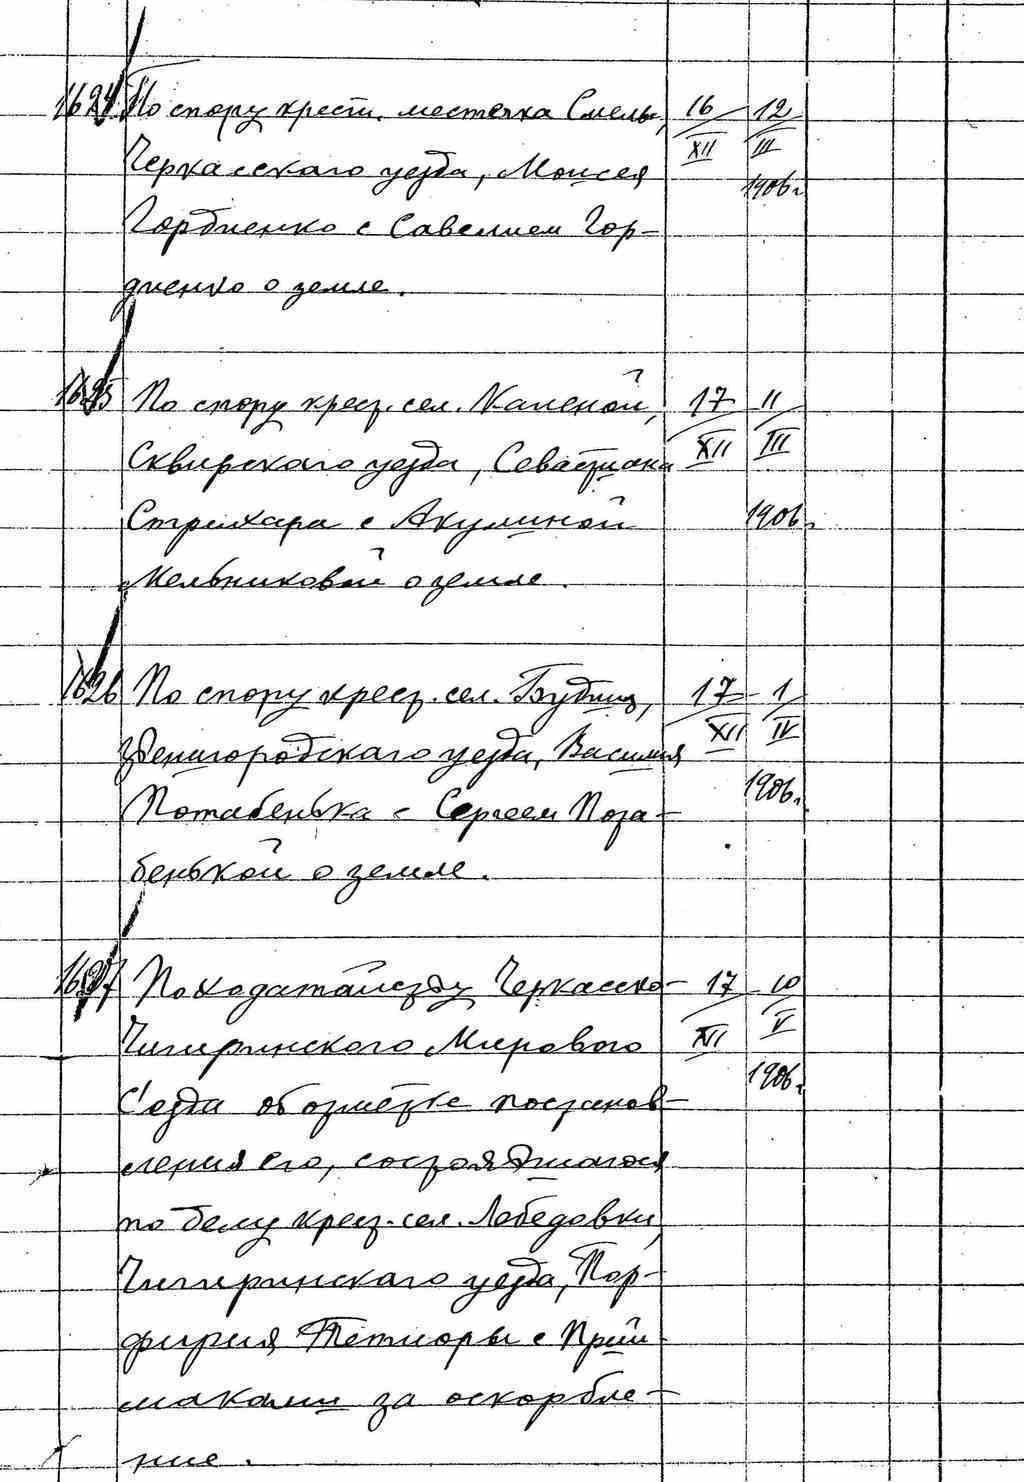 1624 По спору крест. местечка Смелы, 16 12
Черкасскаго уезда, Моисея XII III
Гордиенко с Савелием Гор- 1906 г.
диенко о земле.
1625 По спору крест. сел. Каленой, 17 11
Сквирскаго уезда, Севастиана XII III
Стрихара с Акулиной 1906 г.
Мельниковой о земле.
1626 По спору крест. сел. Будищ, 17 1
Звенигородскаго уезда, Василия XII IV
Потабенька с Сергеем Пота- 1906 г.
бенькой о земле.
1627 По ходатайству Черкасско- 17 10
Чигиринского Мирового XII V
С'езда об отмене постанов- 1906 г.
ления его, состоявшагося
по делу крест. сел. Лебедовки,
Чигиринскаго уезда, Пор-
фирия Тетиоры с Прий-
маками за оскорбле-
ние.